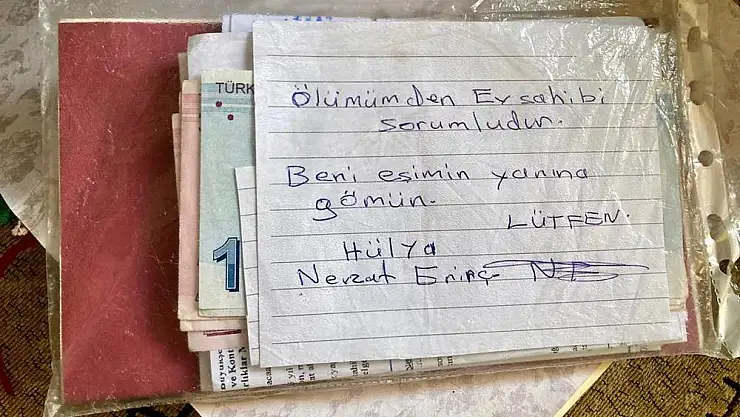 TÜRK
Ölümümden Ev sahibi
sorumludur.
Beni eşimin yanına
gömün.
LÜTFEN.
Hülya
Nevzat Erinç
NE
1
ve Kont